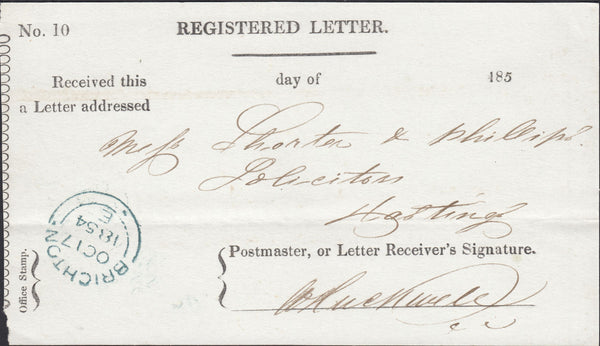 No. 10 REGISTERED LETTER.
Received this day of 185
a Letter addressed
Messrs Shorter & Phillips
Solicitors
Hastings
BRIGHTON
OC 17
1854
E
Office Stamp.
Postmaster, or Letter Receiver's Signature.